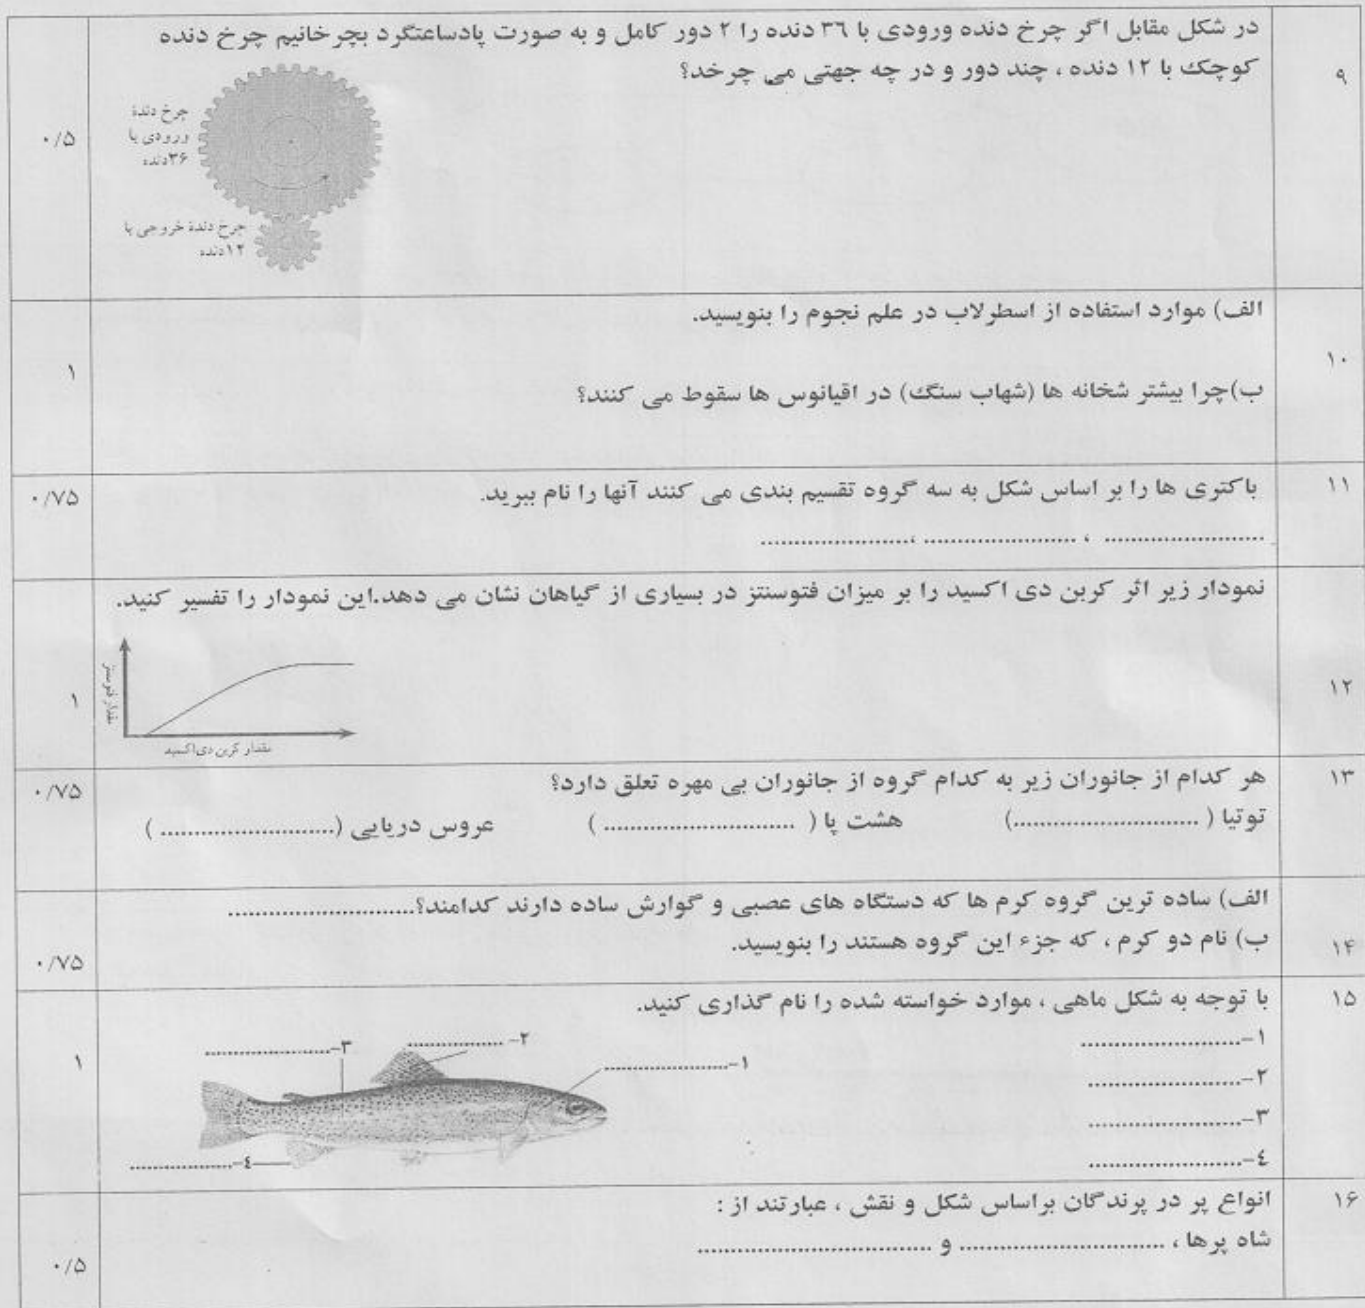 ۹
در شکل مقابل اگر چرخ دنده ورودی با ۳٦ دنده را ۲ دور کامل و به صورت پادساعتگرد بچرخانیم چرخ دنده
کوچک با ۱۲ دنده ، چند دور و در چه جهتی می چرخد؟
چرخ دندهٔ
ورودی با
۳۶دنده
چرخ دندهٔ خروجی با
۱۲دنده
۰/۵
۱۰
الف) موارد استفاده از اسطرلاب در علم نجوم را بنویسید.
ب)چرا بیشتر شخانه ها (شهاب سنگ) در اقیانوس ها سقوط می کنند؟
۱
۱۱
باکتری ها را بر اساس شکل به سه گروه تقسیم بندی می کنند آنها را نام ببرید.
........................ ، ....................... ،.......................
۰/۷۵
۱۲
نمودار زیر اثر کربن دی اکسید را بر میزان فتوسنتز در بسیاری از گیاهان نشان می دهد.این نمودار را تفسیر کنید.
مقدار فتوسنتز
مقدار کربن دی‌اکسید
۱
۱۳
هر کدام از جانوران زیر به کدام گروه از جانوران بی مهره تعلق دارد؟
توتیا ( ............................) هشت پا ( ............................. ) عروس دریایی (.......................... )
۰/۷۵
۱۴
الف) ساده ترین گروه کرم ها که دستگاه های عصبی و گوارش ساده دارند کدامند؟...........................
ب) نام دو کرم ، که جزء این گروه هستند را بنویسید.
۰/۷۵
۱۵
با توجه به شکل ماهی ، موارد خواسته شده را نام گذاری کنید.
۱-.......................
۲-.......................
۳-.......................
٤-.......................
۱-...................
۲- ...............
۳-...................
٤-................
۱
۱۶
انواع پر در پرندگان براساس شکل و نقش ، عبارتند از :
شاه پرها ، ............................... و ...................................
۰/۵